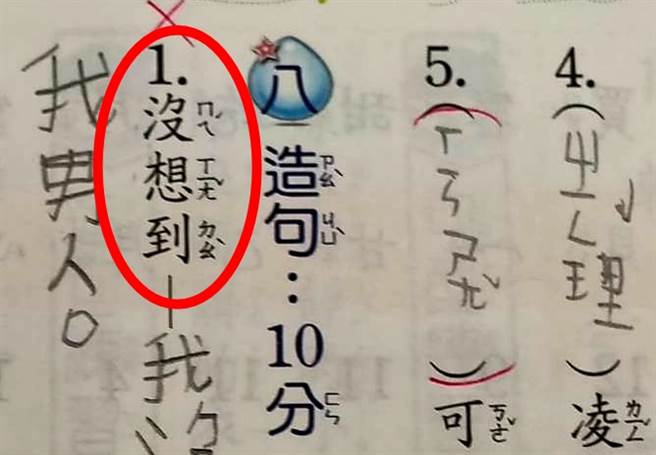 4.
(ㄓㄥ理)
凌ㄌㄧㄥˊ
5.
(
)
可ㄎㄜˇ
八 造ㄗㄠˋ句ㄐㄩˋ：10分ㄈㄣ
1.
沒ㄇㄟˊ想ㄒㄧㄤˇ到ㄉㄠˋ—我沒
我男人。